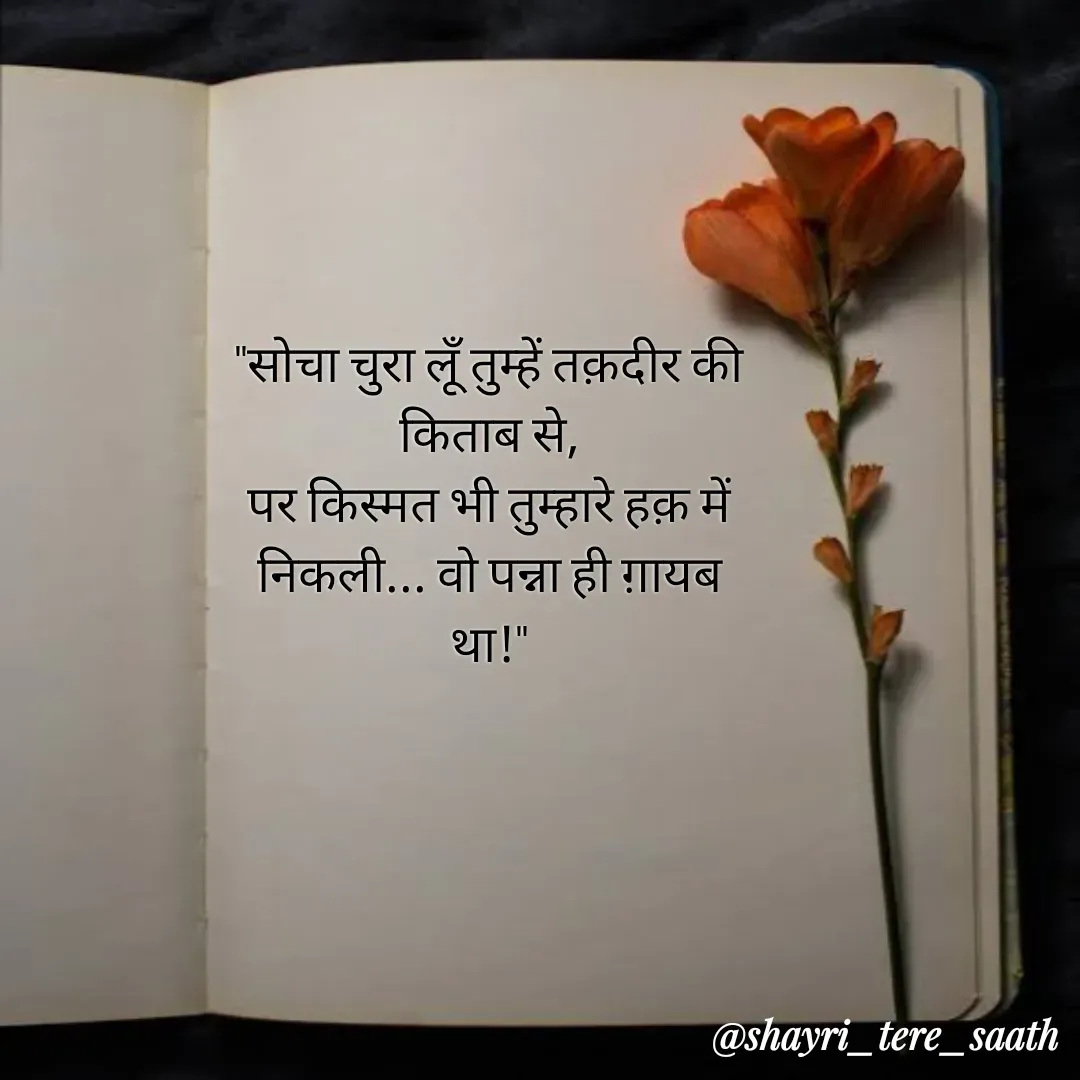 "सोचा चुरा लूँ तुम्हें तक़दीर की
किताब से,
पर किस्मत भी तुम्हारे हक़ में
निकली... वो पन्ना ही ग़ायब
था!"
@shayri_tere_saath